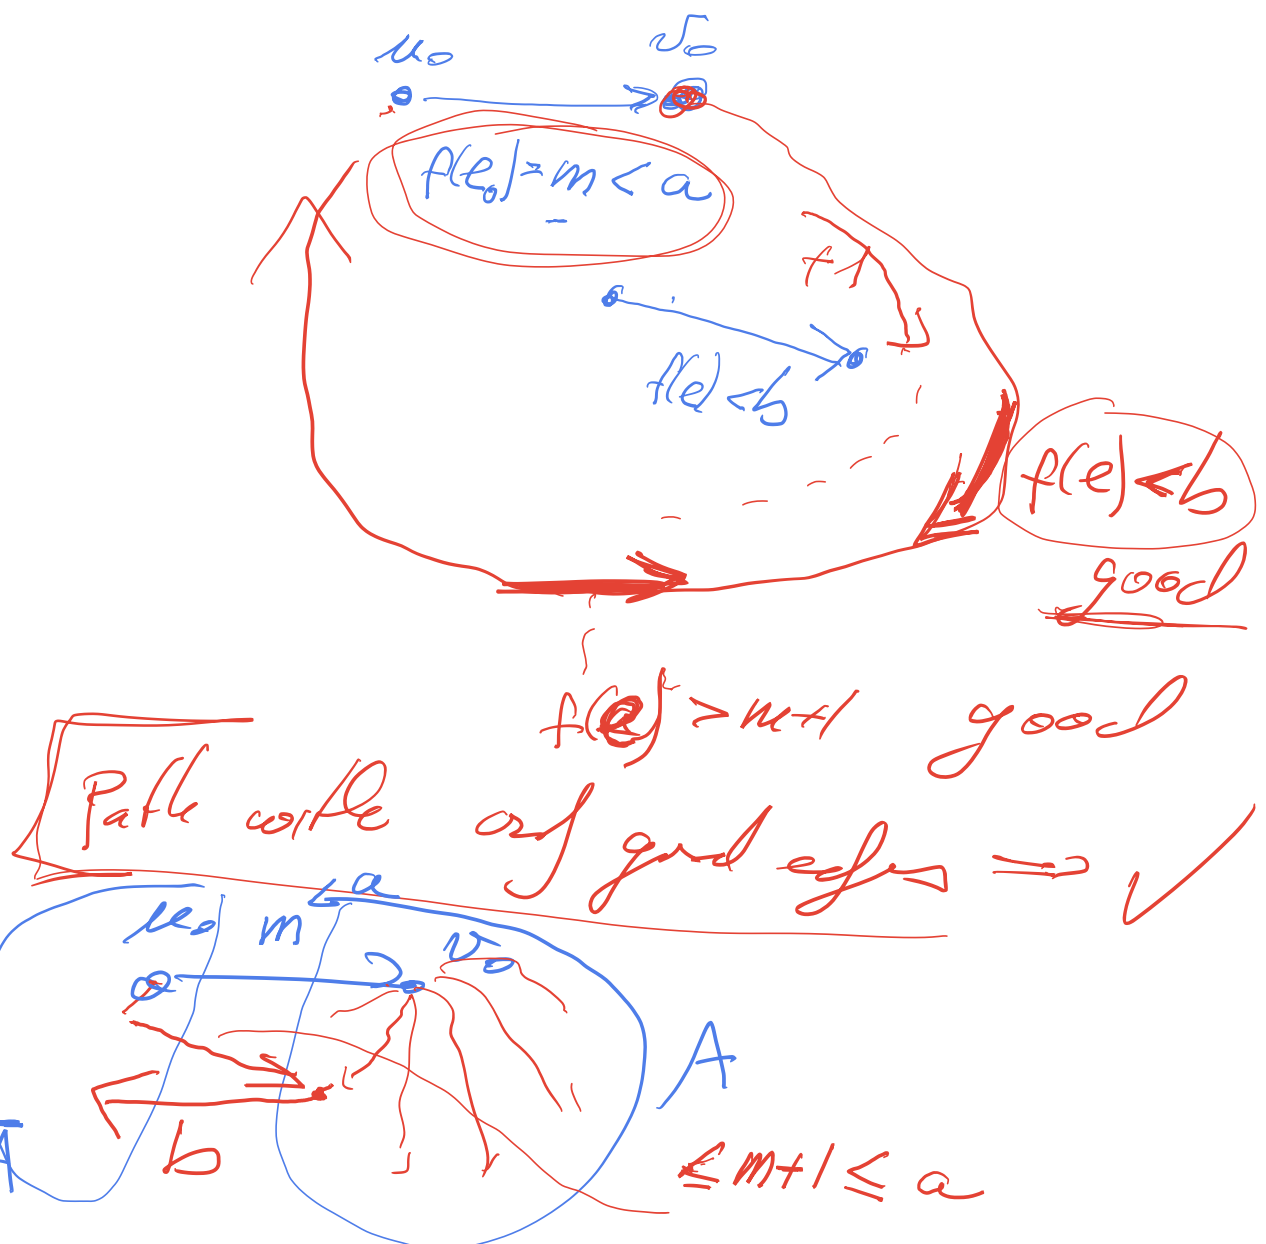 u₀ v₀
f(e₀) = m < a
+1
f(e) < b
f(e) < b
good
f(e) > m+1 good
Path with of good edges ⇒ ✓
< a
u₀ m v₀
A
b
≤ m+1 ≤ a